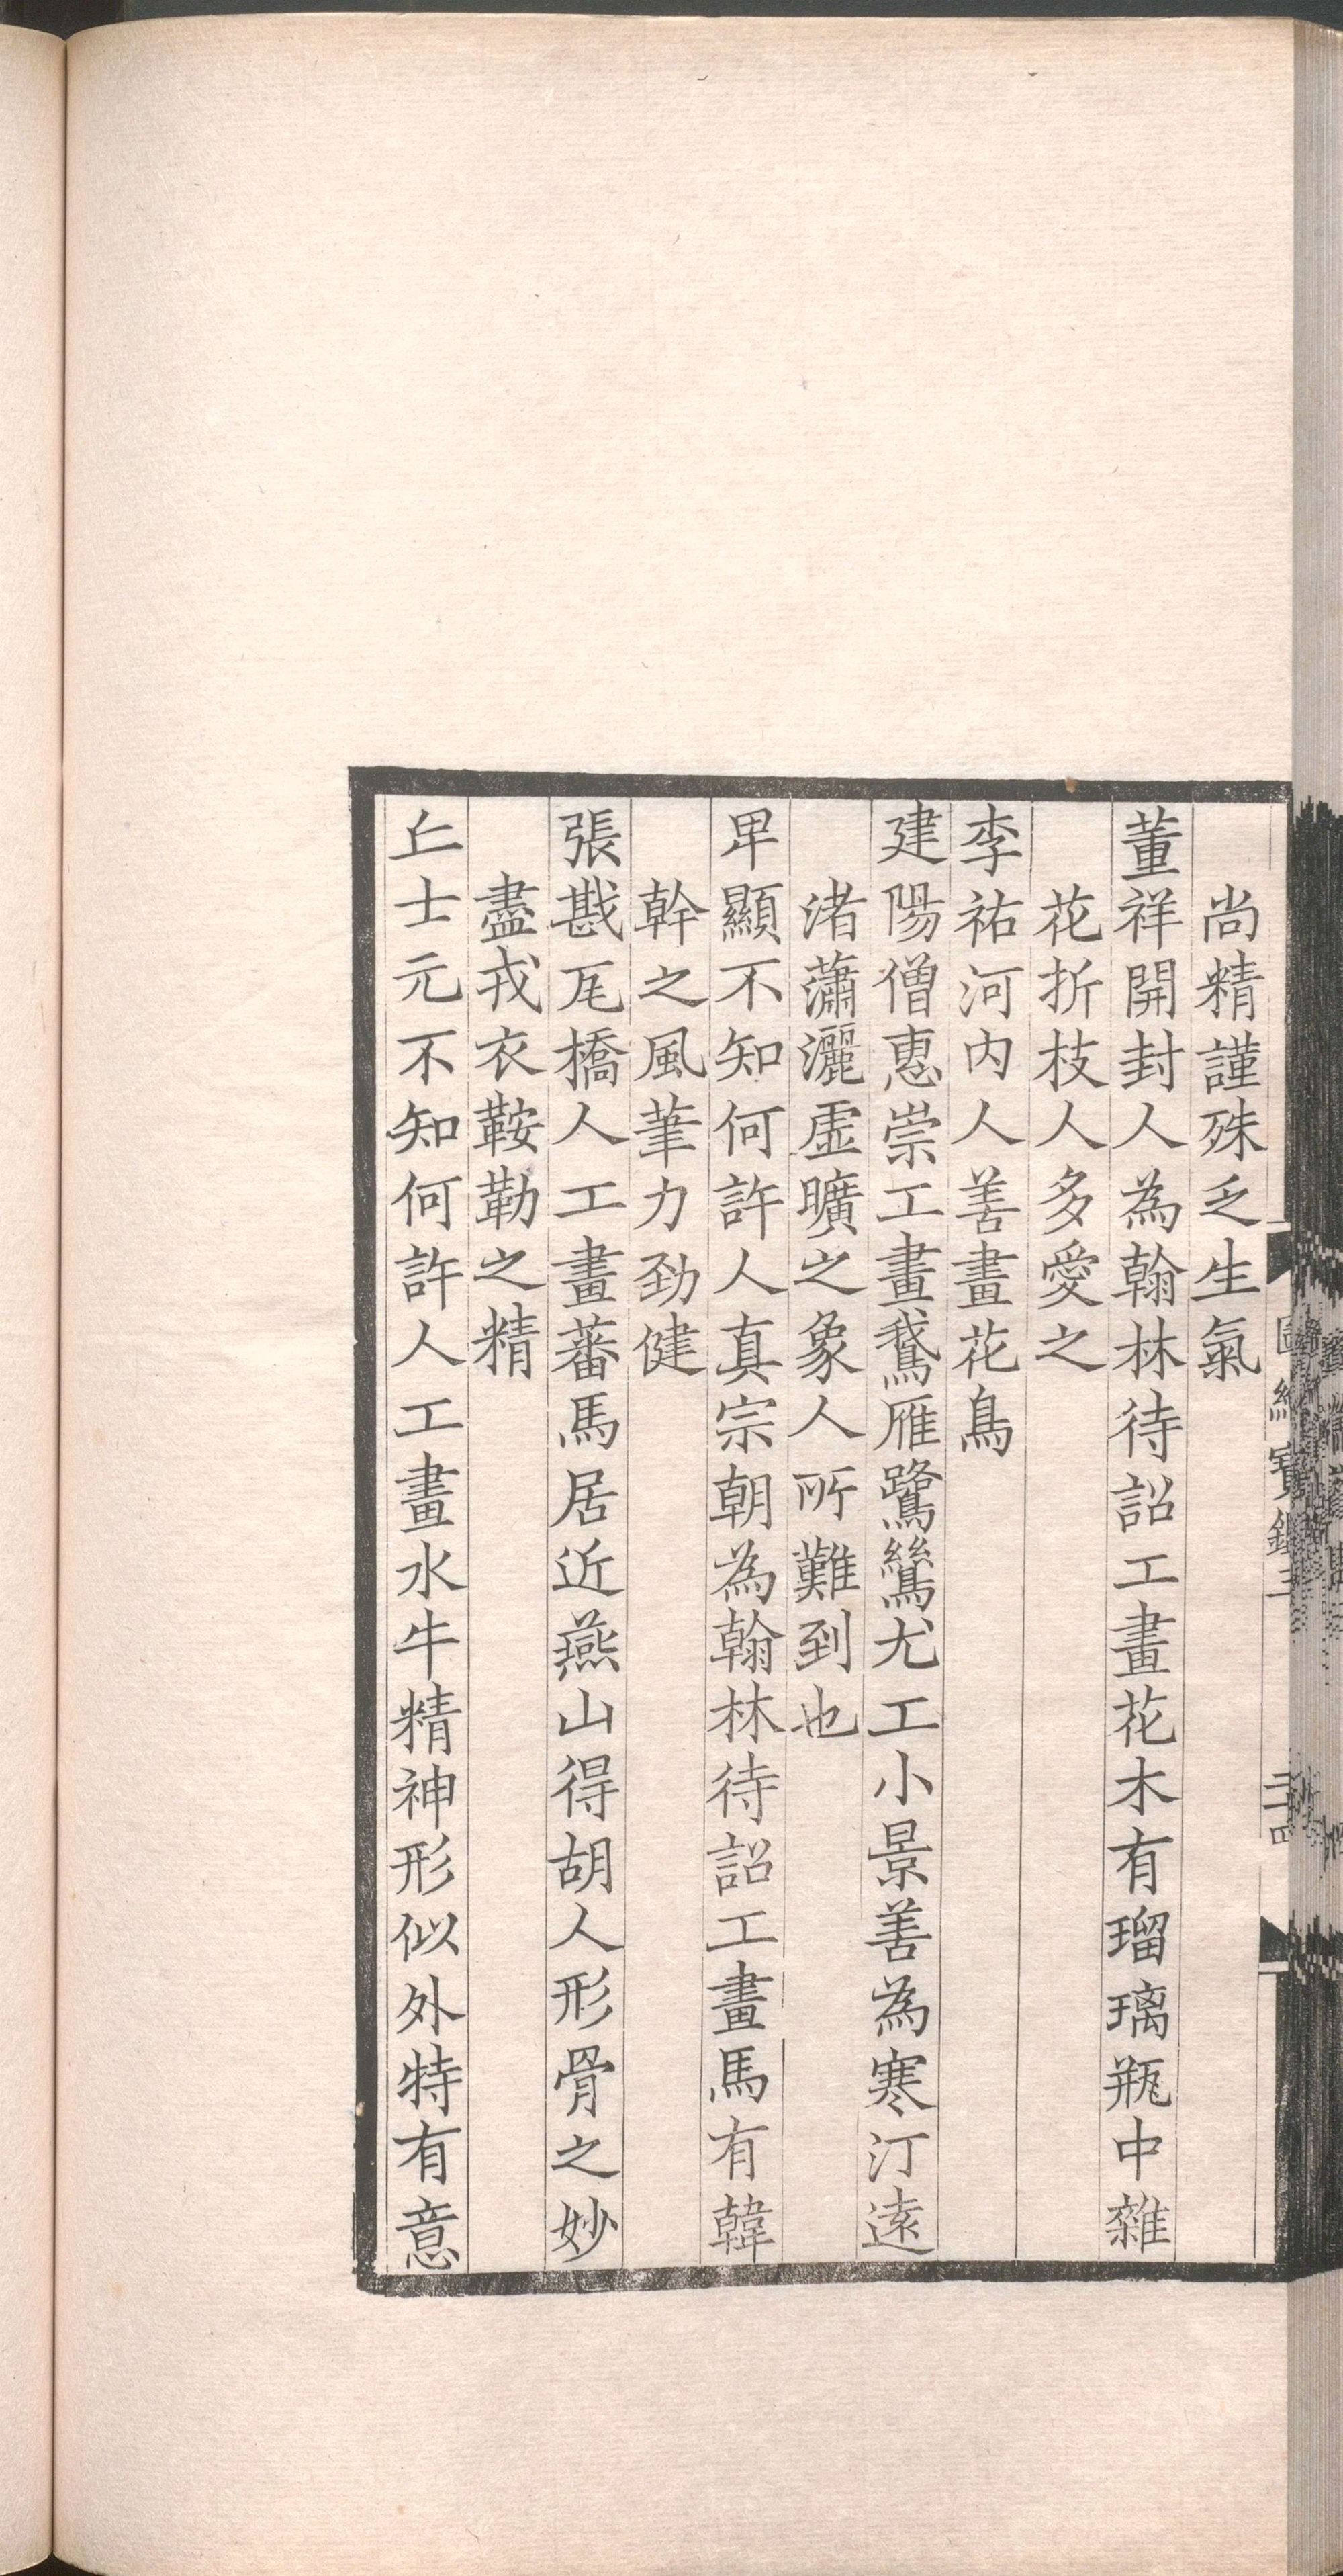 尚精謹殊乏生氣
董祥開封人為翰林待詔工畫花木有瑠璃瓶中雜
花折枝人多愛之
李祐河内人善畫花鳥
建陽僧惠崇工畫鵞雁鷺鷥尤工小景善為寒汀遠
渚瀟灑虛曠之象人所難到也
𤰞顯不知何許人真宗朝為翰林待詔工畫馬有韓
幹之風筆力勁健
張戡瓦橋人工畫蕃馬居近燕山得胡人形骨之妙
盡戎衣鞍勒之精
丘士元不知何許人工畫水牛精神形似外特有意